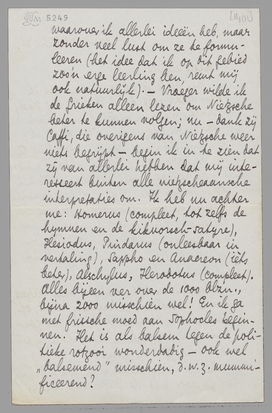 5249
waarover ik allerlei ideeën heb, maar
zonder veel lust om ze te formu-
leeren (het idee dat ik op dit gebied
zoo'n erge leerling ben, remt mij
ook natuurlijk). — Vroeger wilde ik
de Grieken alleen lezen om Nietzsche
beter te kunnen volgen; nu — dank zij
Caffi, die overigens van Nietzsche weer
niets begrijpt — begin ik in te zien dat
zij van allerlei hebben dat mij inte-
resseert buiten alle nietzscheaansche
interpretaties om. Ik heb nu achter
me: Homerus (compleet, tot zelfs de
hymnen en de kikvorsch-satyre),
Hesiodus, Pindarus (onleesbaar in
vertaling), Sappho en Anacreon (iets
beter), Aeschylus, Herodotus (compleet).
Alles bijeen ver over de 1000 blzn.,
bijna 2000 misschien wel! En ik ga
met frissche moed aan Sophocles begin-
nen. Het is als balsem tegen de poli-
tieke rotzooi wonderbaarlijk — ook wel
„balsemend" misschien, d.w.z. mummi-
ficeerend?